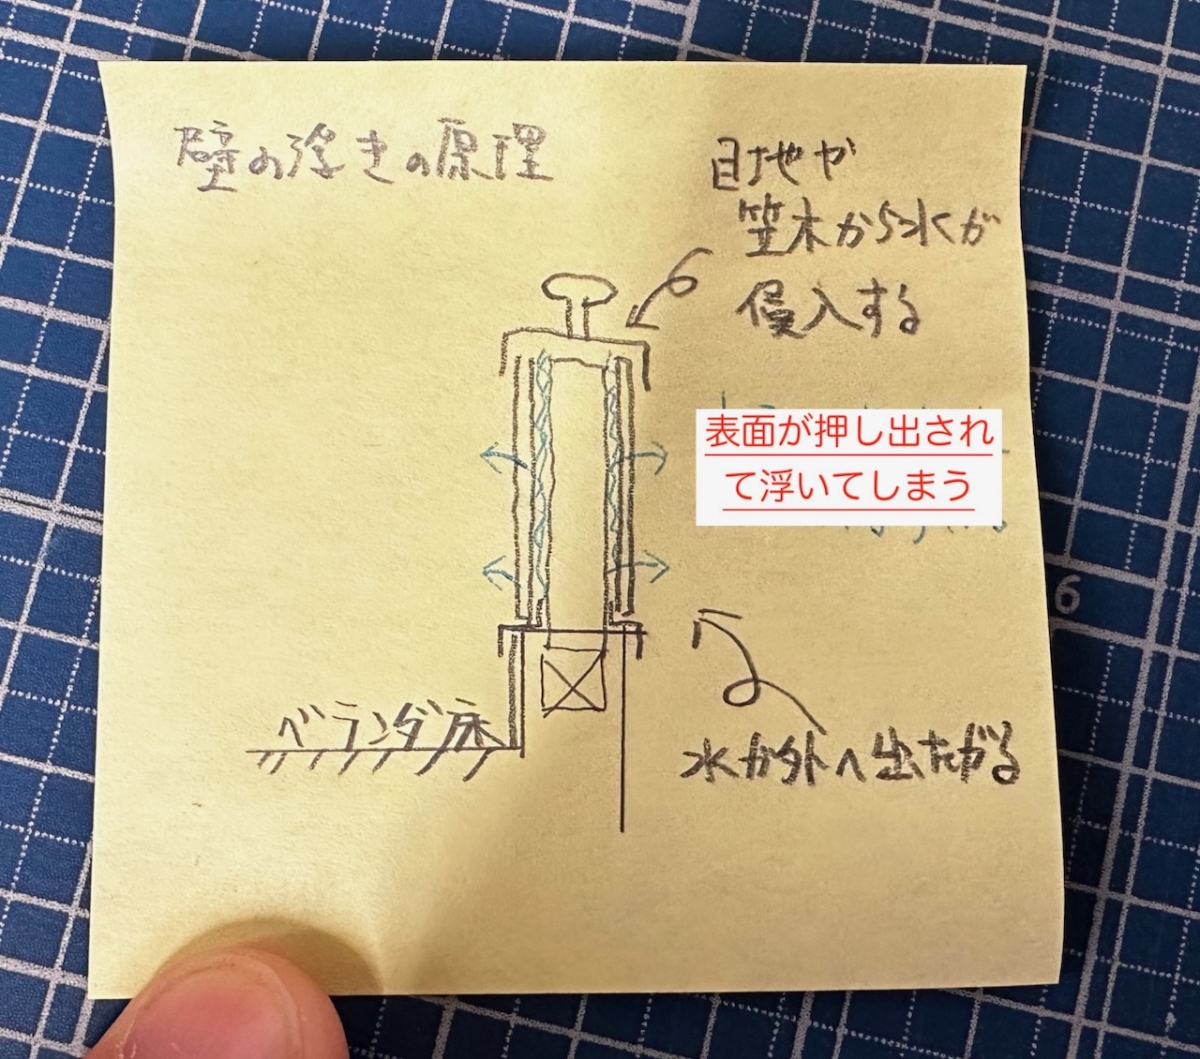 壁の浮きの原理
目地や
笠木から水が
侵入する
表面が押し出され
て浮いてしまう
ベランダ床
水が外へ出たがる
6